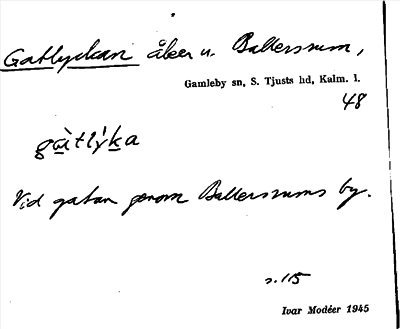 Gatlyckan åker u. Ballersrum,
Gamleby sn, S. Tjusts hd, Kalm. l.
48
gàtlỳka
Vid gatan genom Ballersrums by.
s. 115
Ivar Modéer 1945